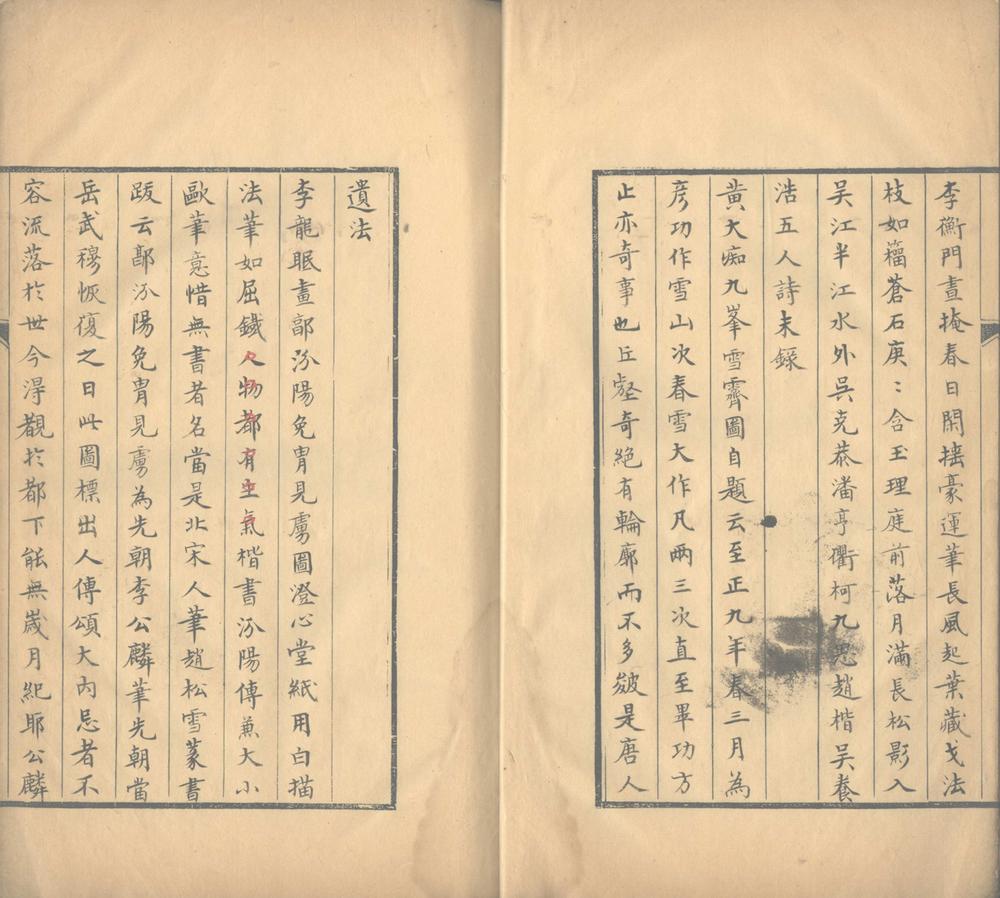 李衡門晝掩春日閑揺豪運筆長風起葉藏戈法
枝如籀蒼石庚：含玉理庭前落月滿長松影入
吴江半江水外吳克恭潘亨衢柯九思趙楷吴養
浩五人詩未錄
黄大痴九峯雪霽圖自題云至正九年春三月為
彦功作雪山次春雪大作凡兩三次直至畢功方
止亦奇事也丘壑奇絕有輪廓而不多皴是唐人
遺法
李龍眠畫郭汾陽免胄見虜圖澄心堂紙用白描
法筆如屈鐵人物都有生氣楷書汾陽傳兼大小
歐筆意惜無書者名當是北宋人筆趙松雪篆書
跋云郭汾陽免胄見虜為先朝李公麟筆先朝當
岳武穆恢復之日此圖標出人傳頌大内忌者不
容流落於世今得觀於都下能無歲月紀耶公麟